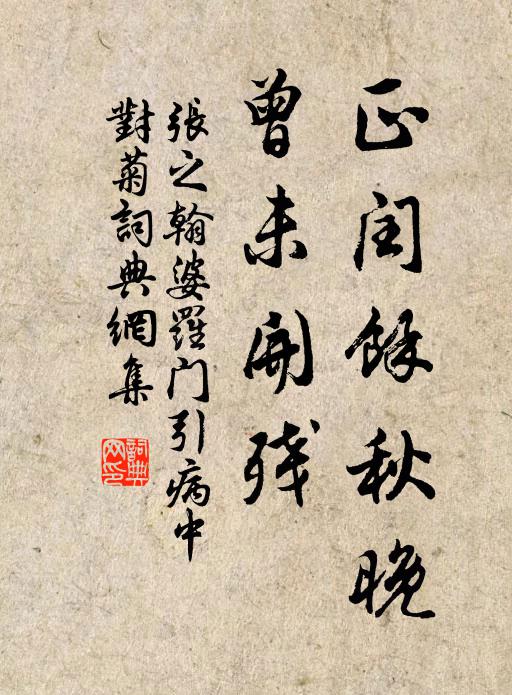 正闰餘秋晚
曾未開残
張之翰婆羅门引病中
對菊詞典網集
詞典网印